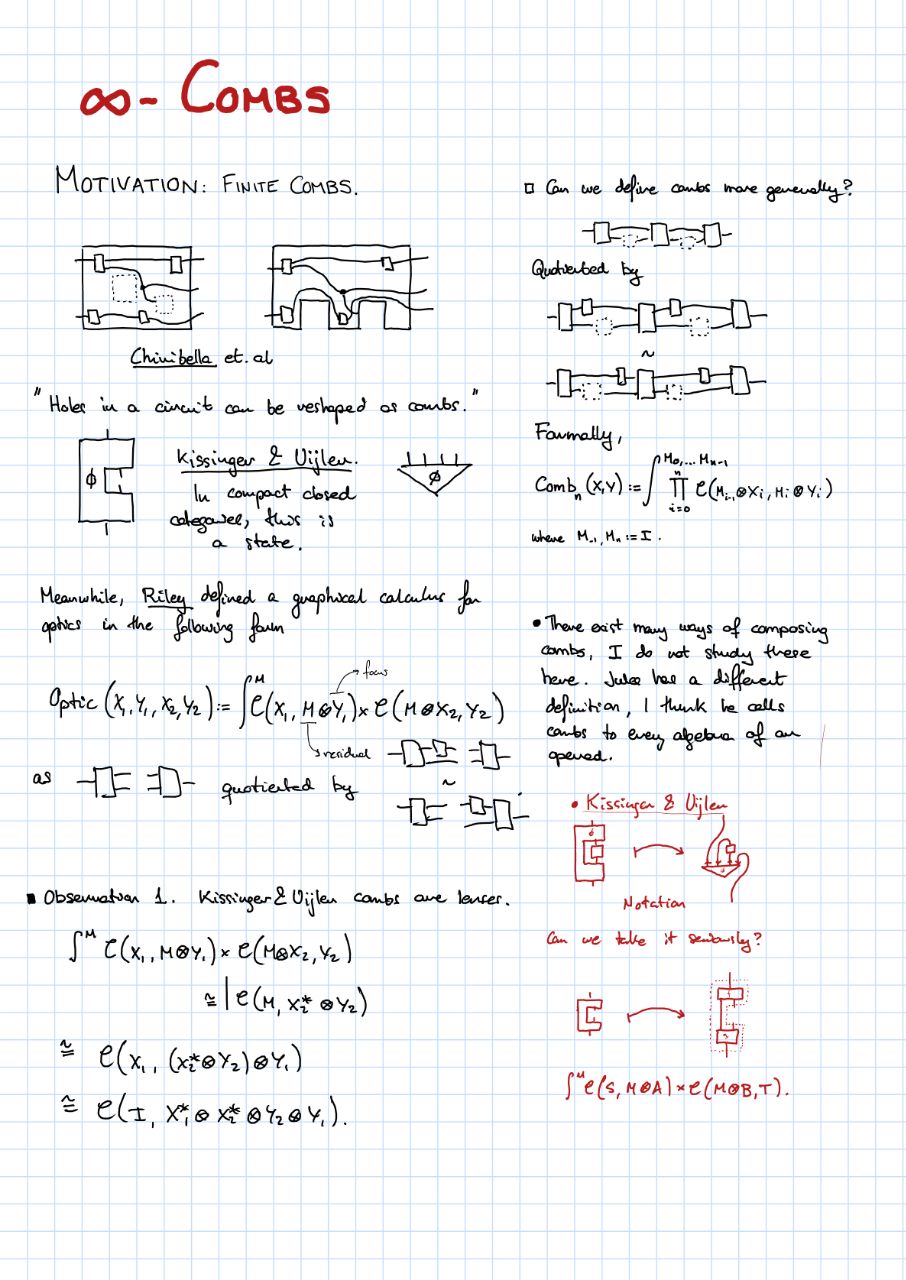 ∞- COMBS
MOTIVATION: FINITE COMBS.
Chiribella et. al
"Holes in a circuit can be reshaped as combs."
Φ
Kissinger & Uijlen.
In compact closed
categories, this is
a state.
Φ
Meanwhile, Riley defined a graphical calculus for
optics in the following form
→ focus
Optic (X₁, Y₁, X₂, Y₂) := ∫^M C(X₁, M⊗Y₁) × C(M⊗X₂, Y₂)
↳ residual
as
quotiented by
~
▪ Observation 1. Kissinger & Uijlen combs are lenses.
∫^M C(X₁, M⊗Y₁) × C(M⊗X₂, Y₂)
≅ | C(M, X₂* ⊗ Y₂)
≅ C(X₁, (X₂*⊗Y₂)⊗Y₁)
≅ C(I, X₁* ⊗ X₂* ⊗ Y₂ ⊗ Y₁).
□ Can we define combs more generally?
Quotiented by
~
Formally,
Comb_n (X,Y) := ∫^{M₀,... M_{n-1}} ∏_{i=0}^{n} C(M_{i-1}⊗X_i, M_i⊗Y_i)
where M₋₁, M_n := I.
• There exist many ways of composing
combs, I do not study these
here. Jules has a different
definition, I think he calls
combs to every algebra of an
operad.
• Kissinger & Uijlen
Notation
Can we take it seriously?
∫^M C(S, M⊗A) × C(M⊗B, T).